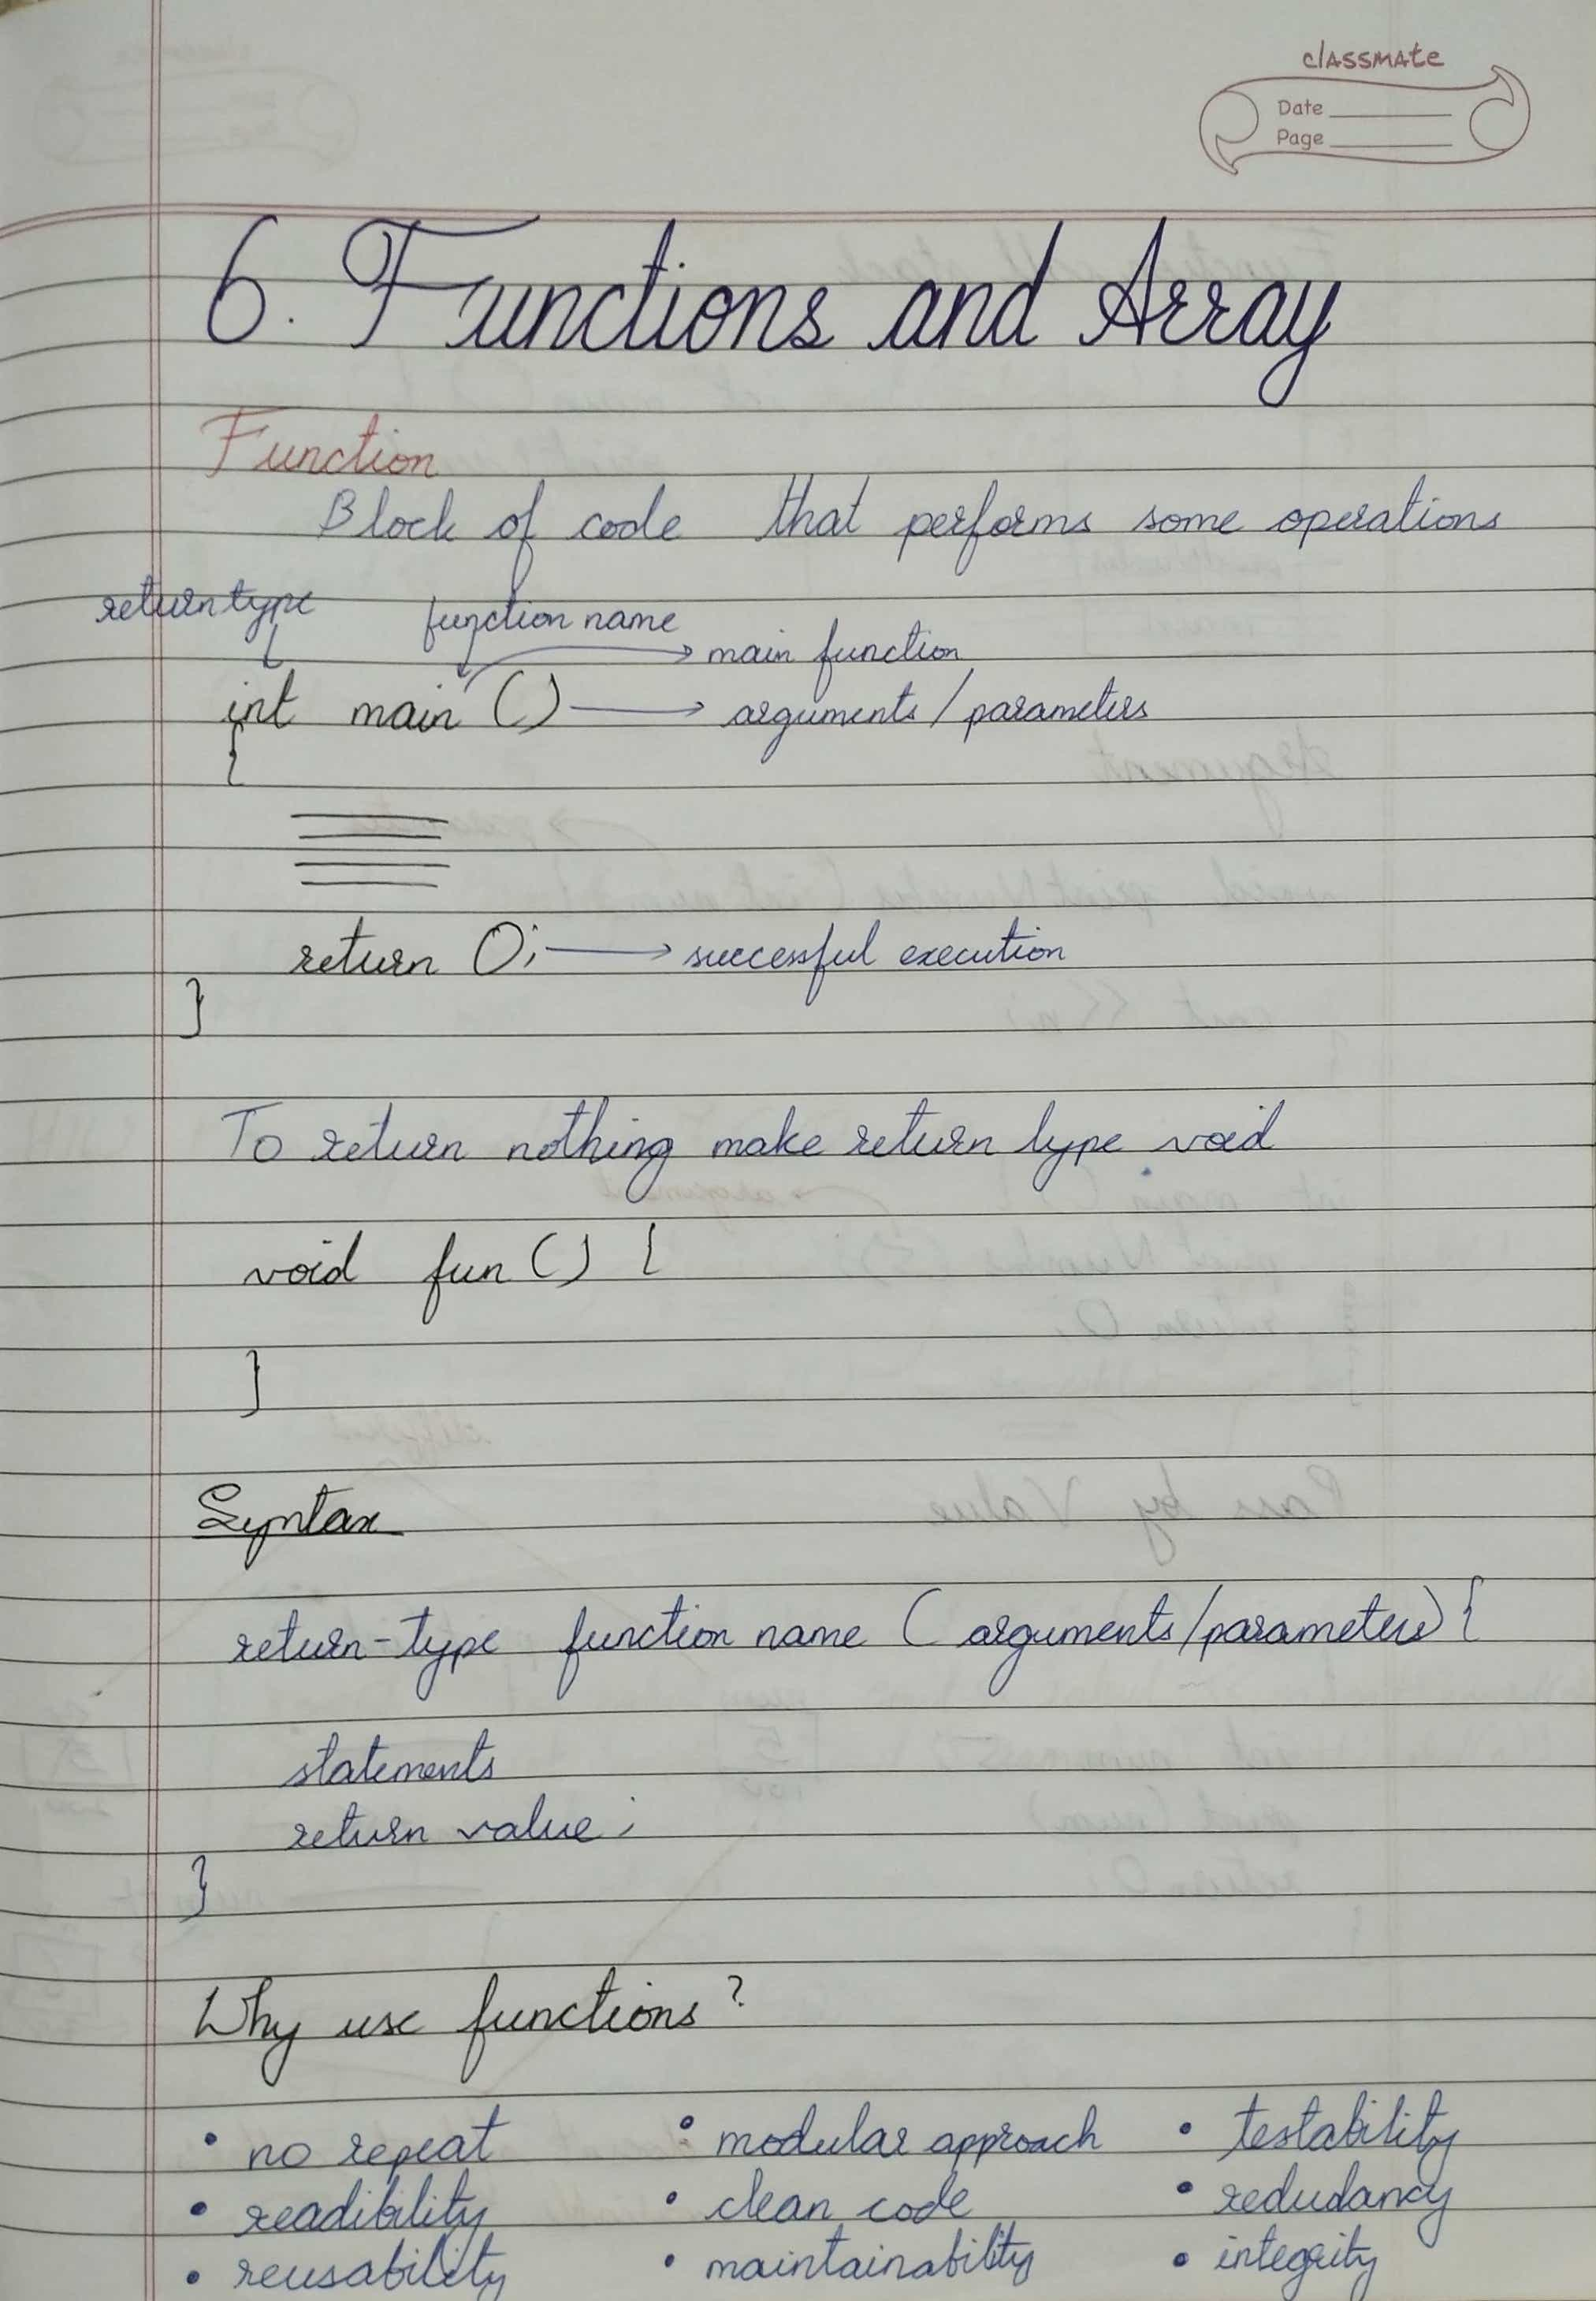 classmate
Date
Page
6. Functions and Array
Function
Block of code that performs some operations
return type function name
main function
int main () arguments/parameters
{
return 0; successful execution
}
To return nothing make return type void
void fun () {
}
Syntax
return-type function name (arguments/parameters) {
statements
return value;
}
Why use functions?
• no repeat • modular approach • testability
• readibility • clean code • redudancy
• reusability • maintainability • integrity